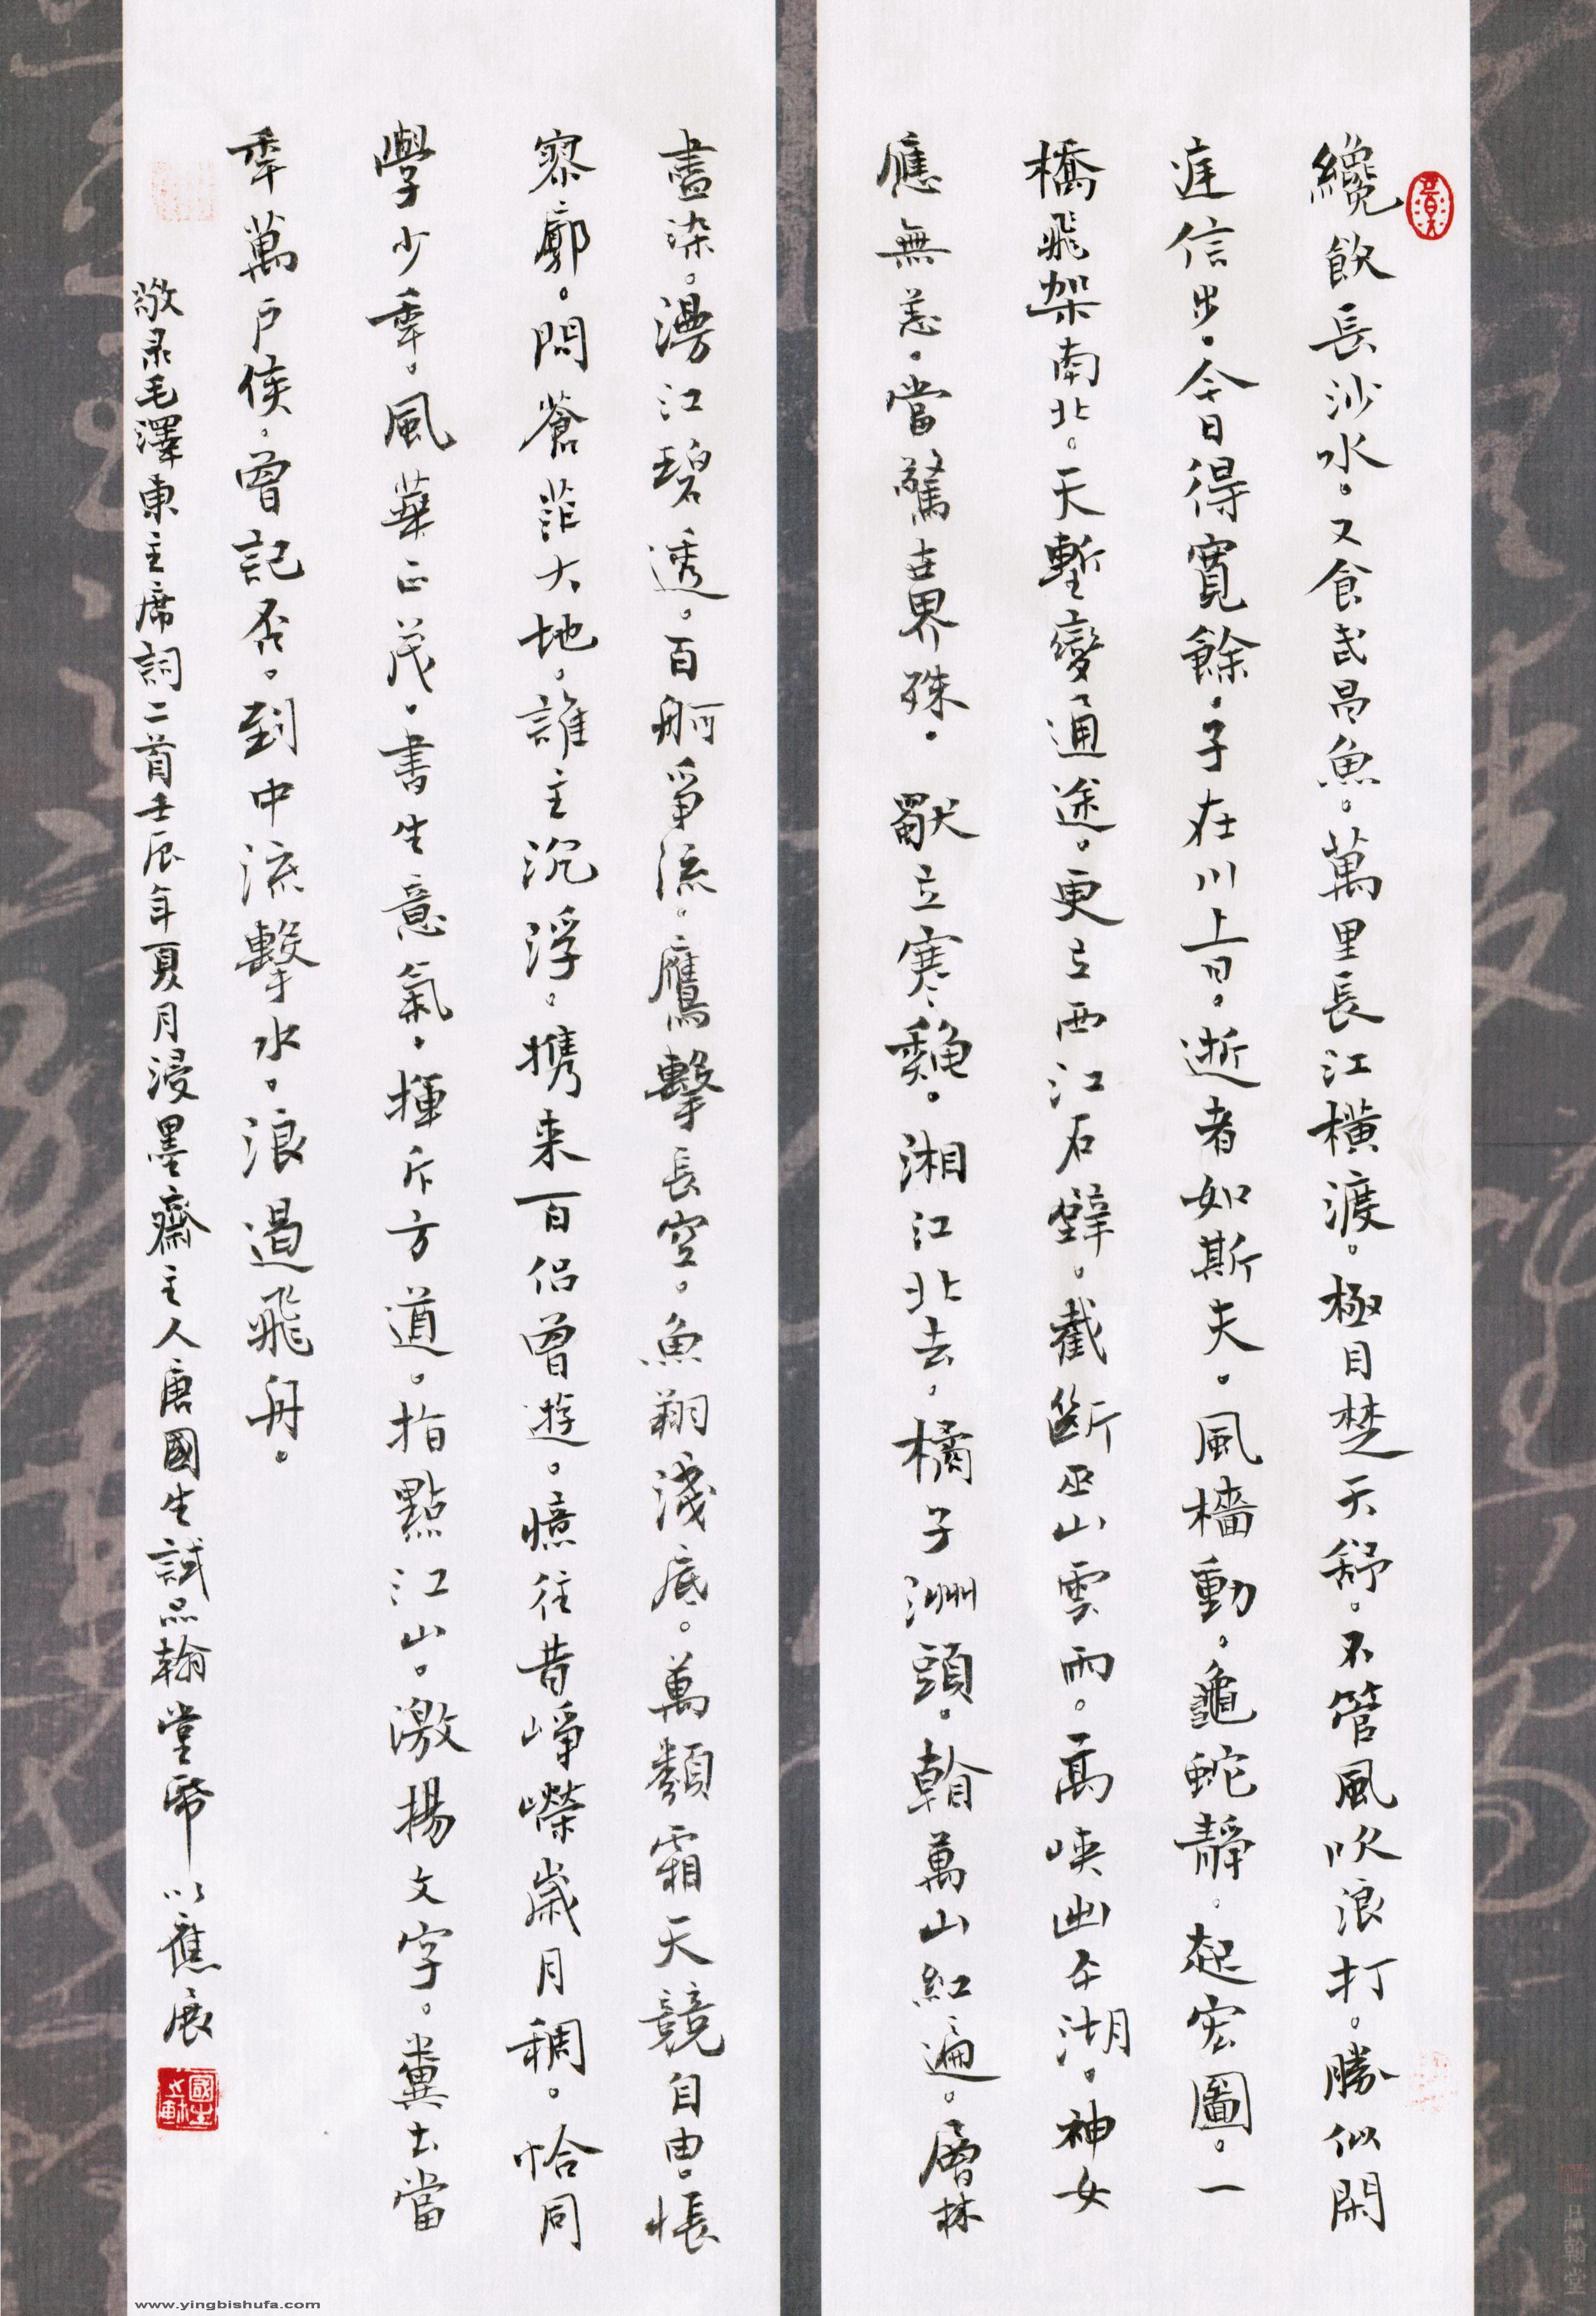 纔飲長沙水。又食武昌魚。萬里長江橫渡。極目楚天舒。不管風吹浪打。勝似閑
庭信步。今日得寬餘。子在川上曰。逝者如斯夫。風檣動。龜蛇靜。起宏圖。一
橋飛架南北。天塹變通途。更立西江石壁。截斷巫山雲雨。高峽出平湖。神女
應無恙。當驚世界殊。獨立寒秋。湘江北去。橘子洲頭。看萬山紅遍。層林
盡染。漫江碧透。百舸爭流。鷹擊長空。魚翔淺底。萬類霜天競自由。悵
寥廓。問蒼茫大地。誰主沉浮。携来百侶曾遊。憶往昔崢嶸歲月稠。恰同
學少年。風華正茂。書生意氣。揮斥方遒。指點江山。激揚文字。糞土當
年萬戶侯。曾記否。到中流擊水。浪遏飛舟。
敬录毛澤東主席詞二首壬辰年夏月浸墨齋主人唐國生試品翰堂帋以應展
品翰堂
www.yingbishufa.com